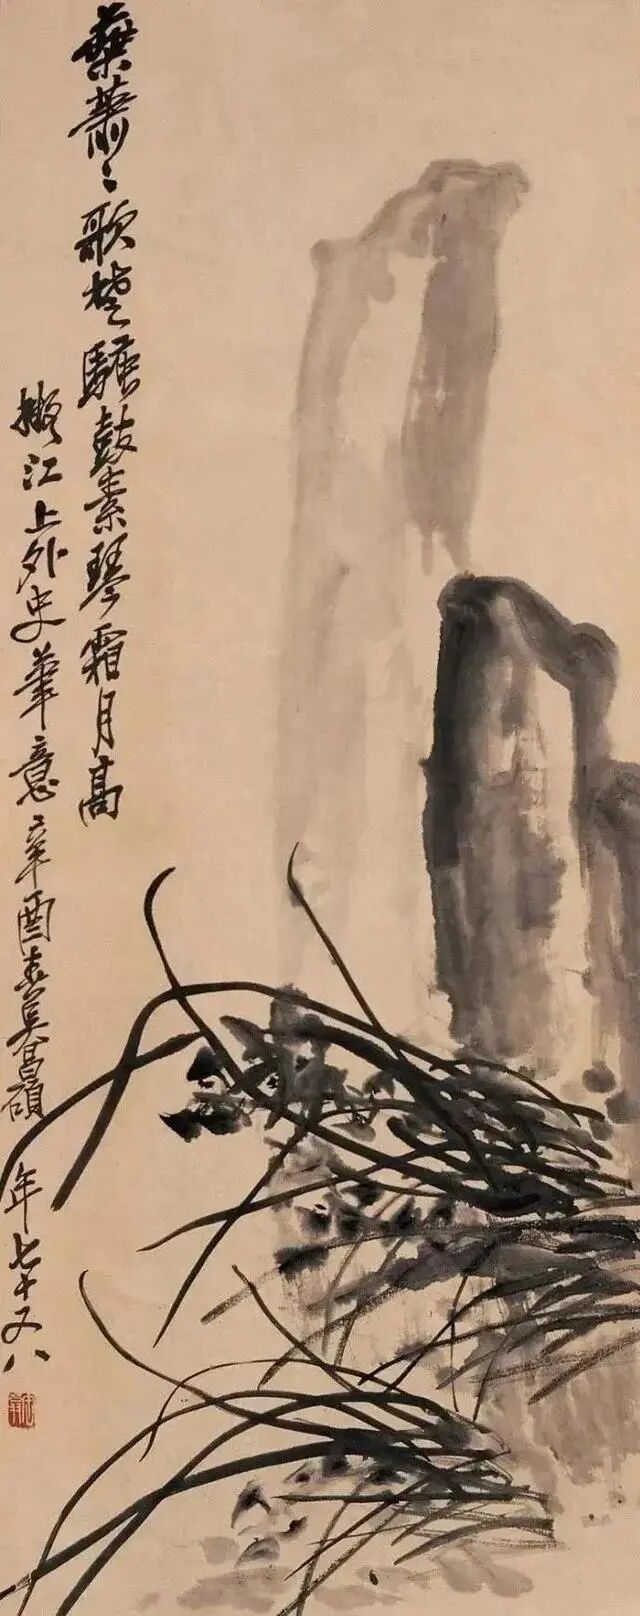 葉蕭〻歌楚騷鼓素琴霜月高
擬江上外史筆意辛酉春吳昌碩
年七十又八